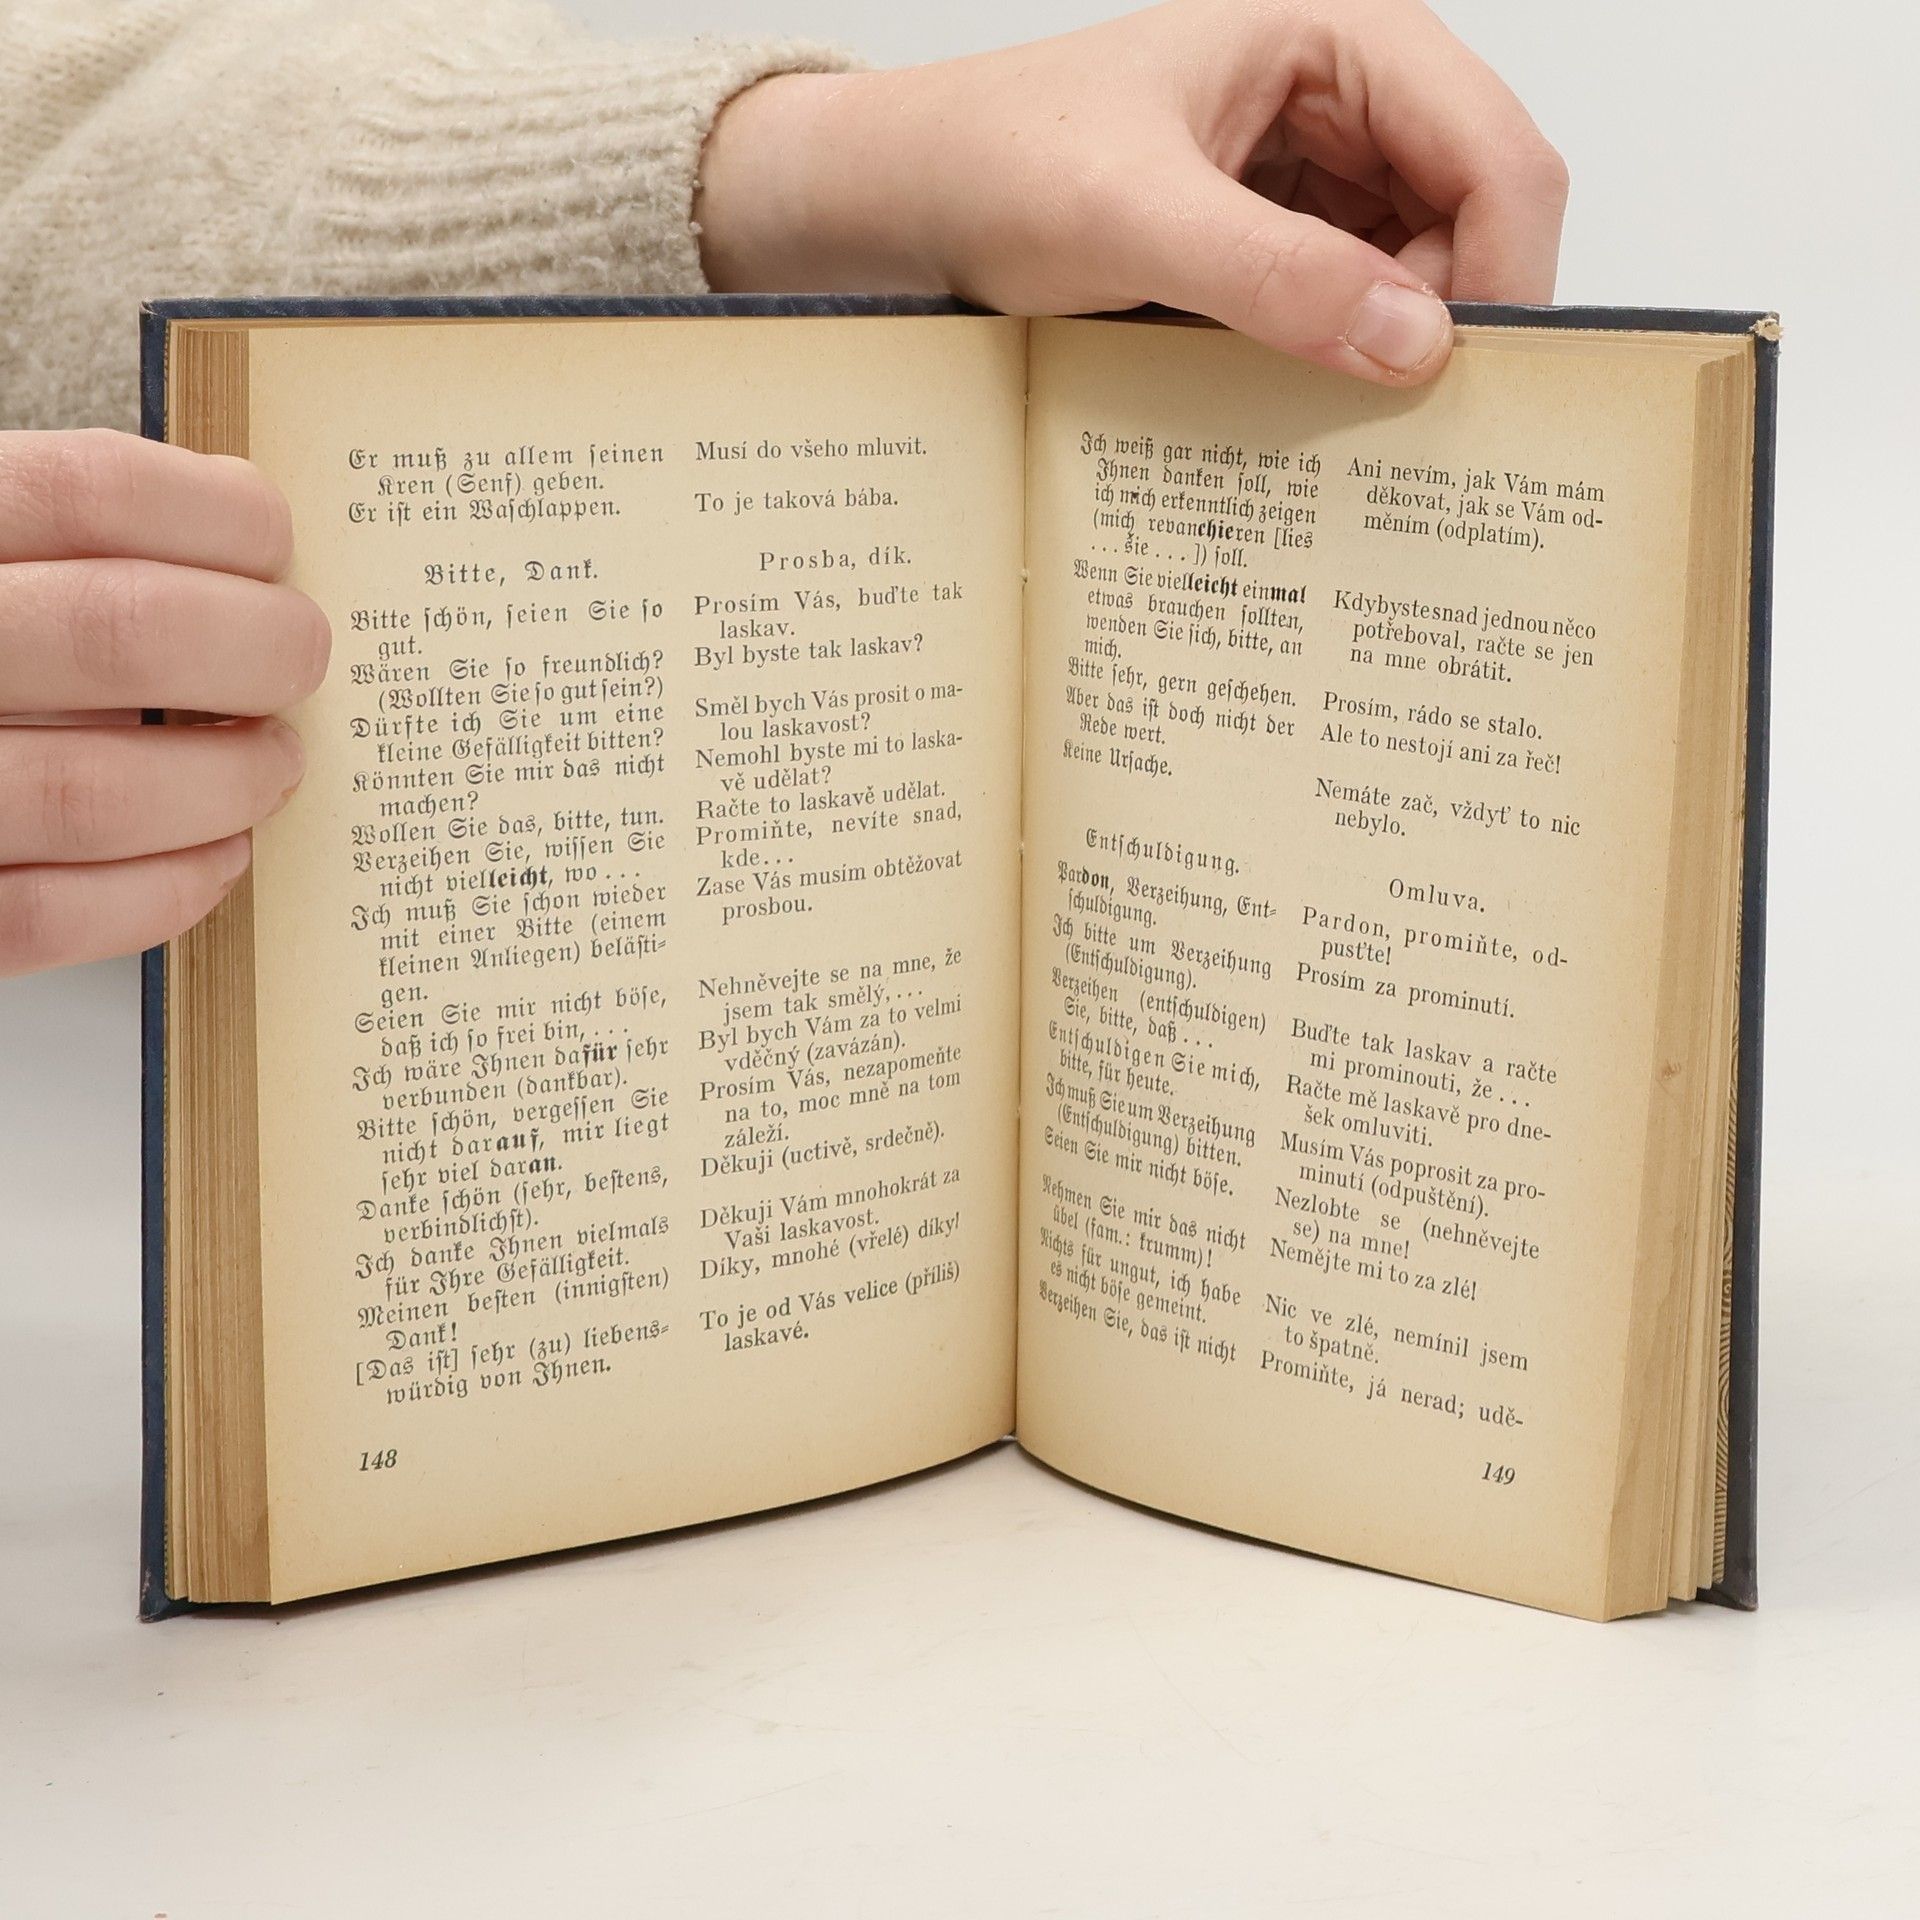 Er muß zu allem seinen
Kren (Senf) geben.
Er ist ein Waschlappen.
Bitte, Dank.
Bitte schön, seien Sie so
gut.
Wären Sie so freundlich?
(Wollten Sie so gut sein?)
Dürfte ich Sie um eine
kleine Gefälligkeit bitten?
Könnten Sie mir das nicht
machen?
Wollen Sie das, bitte, tun.
Verzeihen Sie, wissen Sie
nicht vielleicht, wo . . .
Ich muß Sie schon wieder
mit einer Bitte (einem
kleinen Anliegen) belästi-
gen.
Seien Sie mir nicht böse,
daß ich so frei bin, . . .
Ich wäre Ihnen dafür sehr
verbunden (dankbar).
Bitte schön, vergessen Sie
nicht darauf, mir liegt
sehr viel daran.
Danke schön (sehr, bestens,
verbindlichst).
Ich danke Ihnen vielmals
für Ihre Gefälligkeit.
Meinen besten (innigsten)
Dank!
[Das ist] sehr (zu) liebens-
würdig von Ihnen.
Musí do všeho mluvit.
To je taková bába.
Prosba, dík.
Prosím Vás, buďte tak
laskav.
Byl byste tak laskav?
Směl bych Vás prosit o ma-
lou laskavost?
Nemohl byste mi to laska-
vě udělat?
Račte to laskavě udělat.
Promiňte, nevíte snad,
kde...
Zase Vás musím obtěžovat
prosbou.
Nehněvejte se na mne, že
jsem tak smělý,...
Byl bych Vám za to velmi
vděčný (zavázán).
Prosím Vás, nezapomeňte
na to, moc mně na tom
záleží.
Děkuji (uctivě, srdečně).
Děkuji Vám mnohokrát za
Vaši laskavost.
Díky, mnohé (vřelé) díky!
To je od Vás velice (příliš)
laskavé.
148
Ich weiß gar nicht, wie ich
Ihnen danken soll, wie
ich mich erkenntlich zeigen
(mich revanchieren [lies
. . . šie . . . ]) soll.
Wenn Sie vielleicht einmal
etwas brauchen sollten,
wenden Sie sich, bitte, an
mich.
Bitte sehr, gern geschehen.
Aber das ist doch nicht der
Rede wert.
Keine Ursache.
Entschuldigung.
Pardon, Verzeihung, Ent-
schuldigung.
Ich bitte um Verzeihung
(Entschuldigung).
Verzeihen (entschuldigen)
Sie, bitte, daß . . .
Entschuldigen Sie mich,
bitte, für heute.
Ich muß Sie um Verzeihung
(Entschuldigung) bitten.
Seien Sie mir nicht böse.
Nehmen Sie mir das nicht
übel (fam.: krumm)!
Nichts für ungut, ich habe
es nicht böse gemeint.
Verzeihen Sie, das ist nicht
Ani nevím, jak Vám mám
děkovat, jak se Vám od-
měním (odplatím).
Kdybyste snad jednou něco
potřeboval, račte se jen
na mne obrátit.
Prosím, rádo se stalo.
Ale to nestojí ani za řeč!
Nemáte zač, vždyť to nic
nebylo.
Omluva.
Pardon, promiňte, od-
pusťte!
Prosím za prominutí.
Buďte tak laskav a račte
mi prominouti, že . . .
Račte mě laskavě pro dne-
šek omluviti.
Musím Vás poprosit za pro-
minutí (odpuštění).
Nezlobte se (nehněvejte
se) na mne!
Nemějte mi to za zlé!
Nic ve zlé, nemínil jsem
to špatně.
Promiňte, já nerad; udě-
149